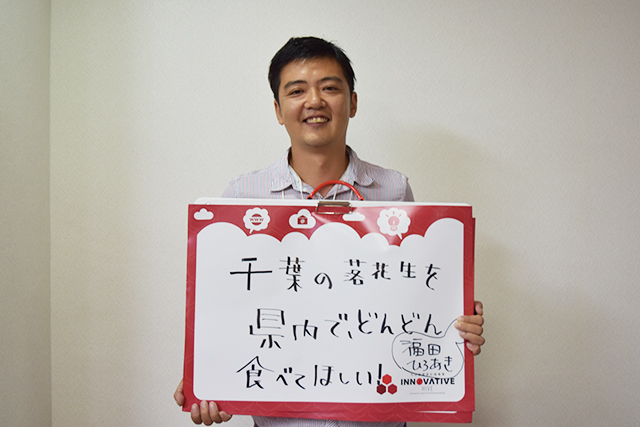 www
千葉の落花生を
県内で、どんどん
食べてほしい!
福田
ひろあき
INNOVATIVE